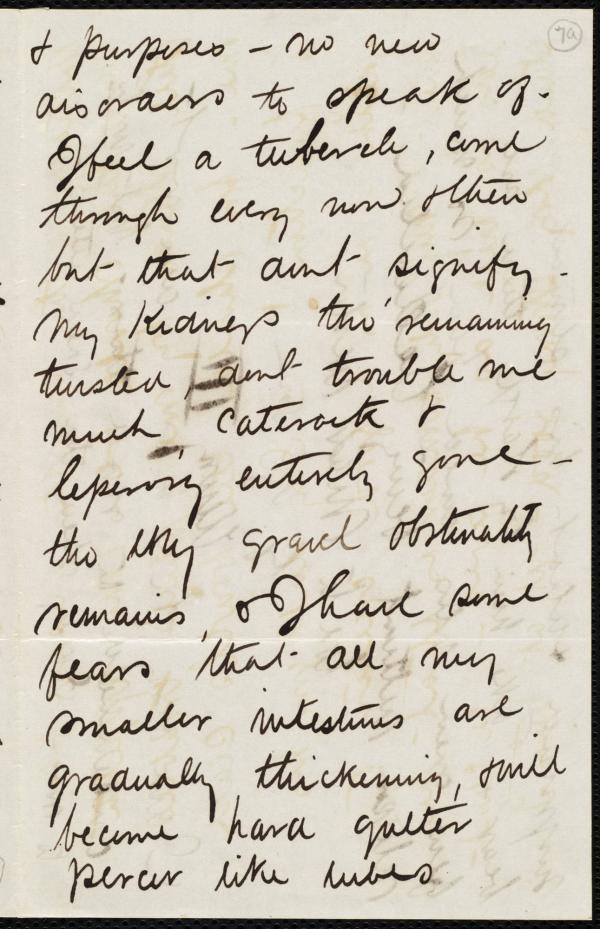 7a
& purposes – no new
disorders to speak of.
I feel a tubercle, come
through every now & then
but that aint signify.
My Kidneys tho' remaining
twisted, dont trouble me
much, cateract &
leprosy entirely gone –
tho the gravel obstinately
remains, & I have some
fears that all my
smaller intestines are
gradually thickening, & will
become hard gutter
percer like tubes